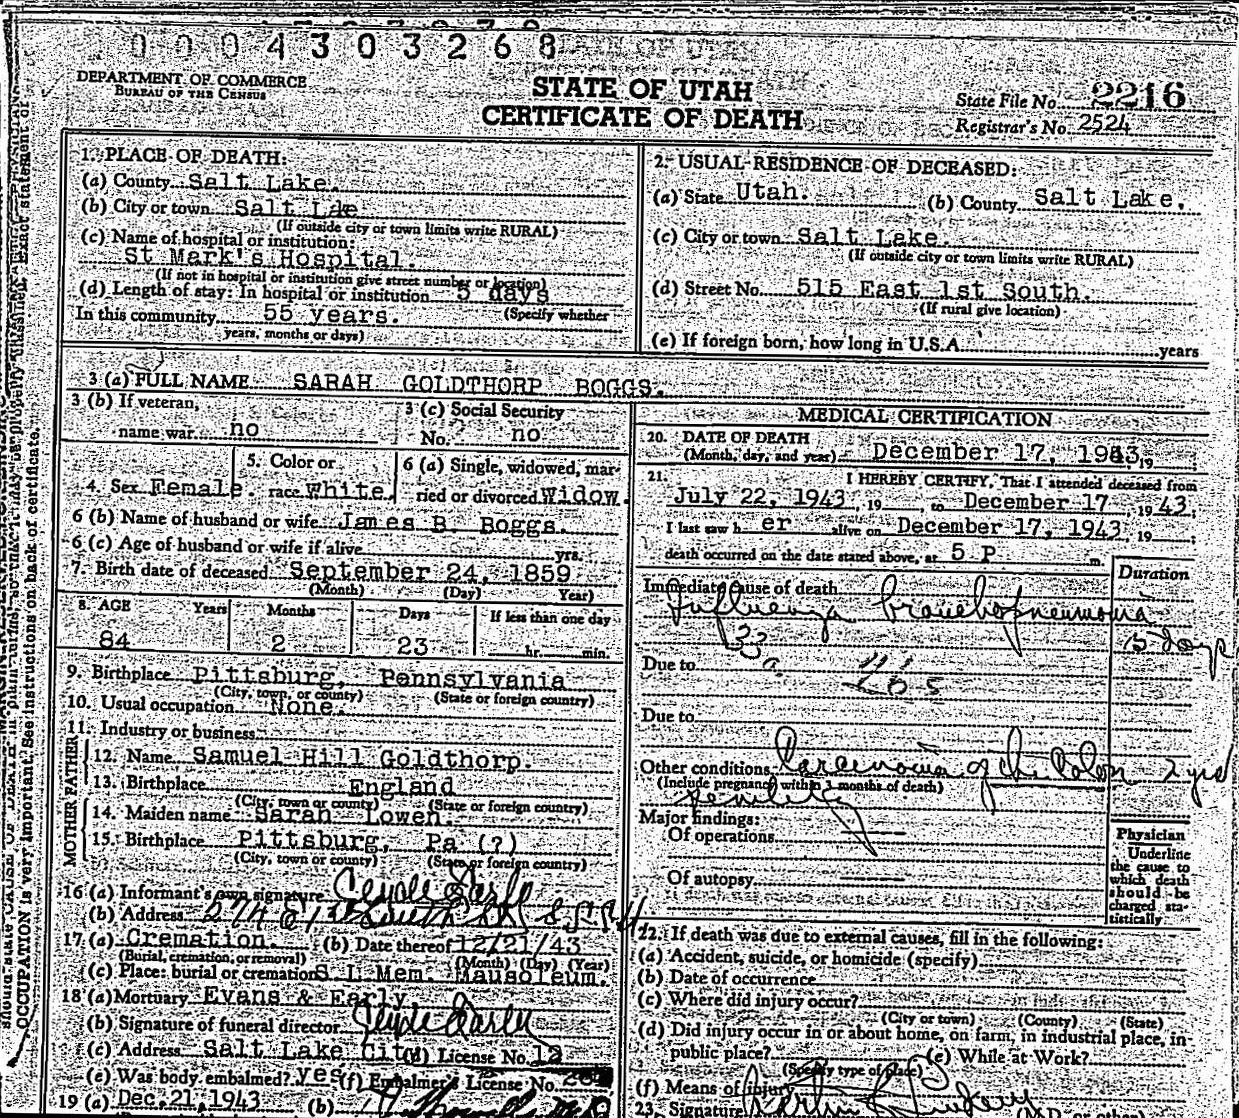 0004303268
DEPARTMENT OF COMMERCE
BUREAU OF THE CENSUS
STATE OF UTAH
CERTIFICATE OF DEATH
State File No. 2216
Registrar's No. 2524
1. PLACE OF DEATH:
(a) County Salt Lake.
(b) City or town Salt Lake
(If outside city or town limits write RURAL)
(c) Name of hospital or institution:
St Mark's Hospital.
(If not in hospital or institution give street number or location)
(d) Length of stay: In hospital or institution 5 days
In this community 55 years. (Specify whether
years, months or days)
2. USUAL RESIDENCE OF DECEASED:
(a) State Utah. (b) County Salt Lake.
(c) City or town Salt Lake.
(If outside city or town limits write RURAL)
(d) Street No. 515 East 1st South.
(If rural give location)
(e) If foreign born, how long in U.S.A. years
3 (a) FULL NAME SARAH GOLDTHORP BOGGS.
3 (b) If veteran,
name war no
3 (c) Social Security
No. no
4. Sex Female.
5. Color or
race White.
6 (a) Single, widowed, mar-
ried or divorced Widow.
6 (b) Name of husband or wife James B. Boggs.
6 (c) Age of husband or wife if alive yrs.
7. Birth date of deceased September 24, 1859
(Month) (Day) Year)
8. AGE Years Months Days If less than one day
84 2 23 hr. min.
9. Birthplace Pittsburg, Pennsylvania
(City, town, or county) (State or foreign country)
10. Usual occupation None.
11. Industry or business
FATHER
12. Name Samuel Hill Goldthorp.
13. Birthplace England
(City, town or county) (State or foreign country)
MOTHER
14. Maiden name Sarah Lowen.
15. Birthplace Pittsburg, Pa (?)
(City, town or county) (State or foreign country)
16 (a) Informant's own signature Clyde Early
(b) Address 574 E 1st South
17. (a) Cremation. (b) Date thereof 12/21/43
(Burial, cremation, or removal) (Month) (Day) (Year)
(c) Place: burial or cremation S. L. Mem. Mausoleum.
18 (a) Mortuary Evans & Early,
(b) Signature of funeral director Clyde Early
(c) Address Salt Lake City (d) License No. 12
(e) Was body embalmed? yes (f) Embalmer's License No.
19 (a) Dec. 21, 1943 (b)
MEDICAL CERTIFICATION
20. DATE OF DEATH
(Month, day, and year) December 17, 1943, 19
21. I HEREBY CERTIFY, That I attended deceased from
July 22, 1943, 19 , to December 17, 19 43;
I last saw h er alive on December 17, 1943, 19 ;
death occurred on the date stated above, at 5 P m.
Duration
Immediate cause of death
Influenza bronchopneumonia
5 days
33 a
Due to
Due to
Other conditions Carcinoma of the Colon 2 yrs
(Include pregnancy within 3 months of death)
Senility
Major findings:
Of operations
Of autopsy
Physician
Underline
the cause to
which death
should be
charged sta-
tistically
22. If death was due to external causes, fill in the following:
(a) Accident, suicide, or homicide (specify)
(b) Date of occurrence
(c) Where did injury occur?
(City or town) (County) (State)
(d) Did injury occur in or about home, on farm, in industrial place, in
public place? (e) While at Work?
(Specify type of place)
(f) Means of injury
23. Signature
OCCUPATION is very important. See instructions on back of certificate.